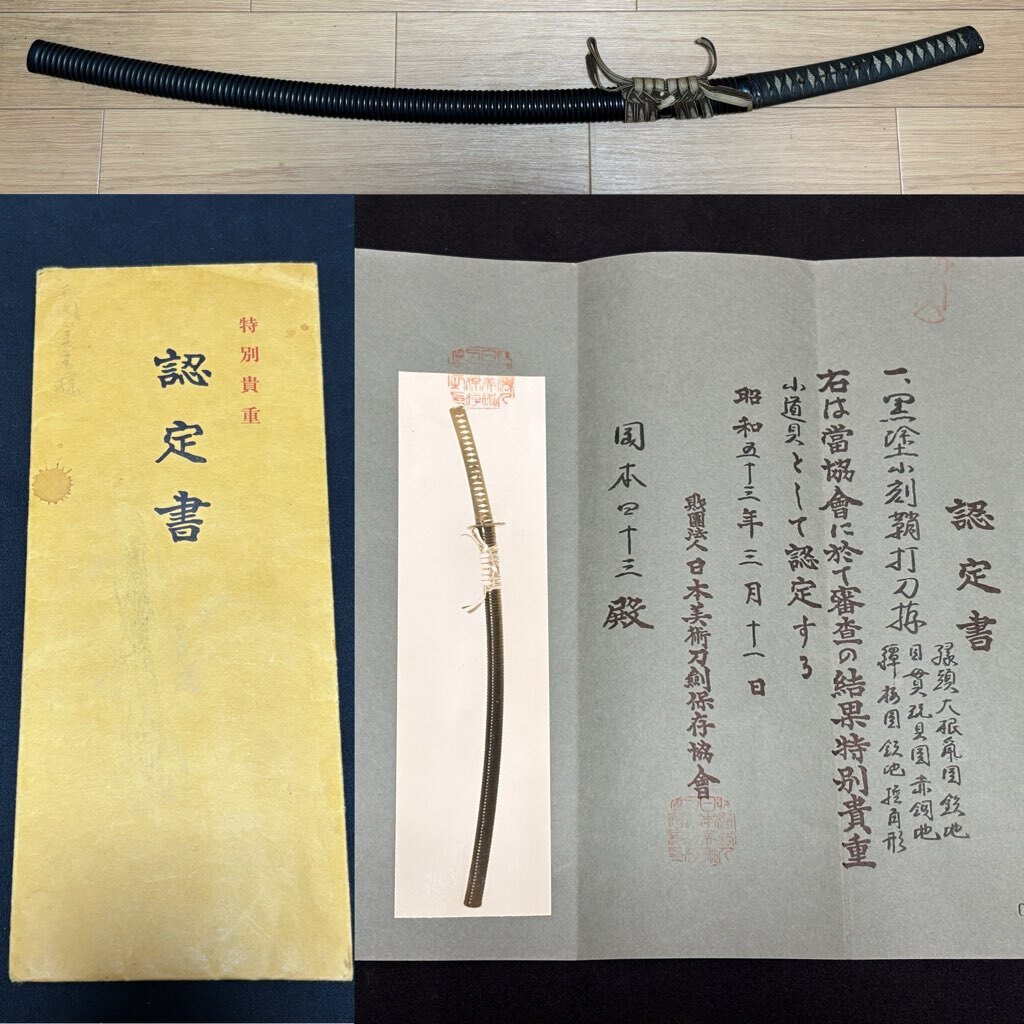 特別貴重
認定書
認定書
一、黒塗小刻鞘打刀拵
縁頭大根鼠図鉄地
目貫玩具図赤銅地
鐔梅図鉄地撫角形
右は當協會に於て審査の結果特別貴重
小道具として認定する
昭和五十三年三月十一日
財團法人日本美術刀劍保存協會
岡本四十三殿